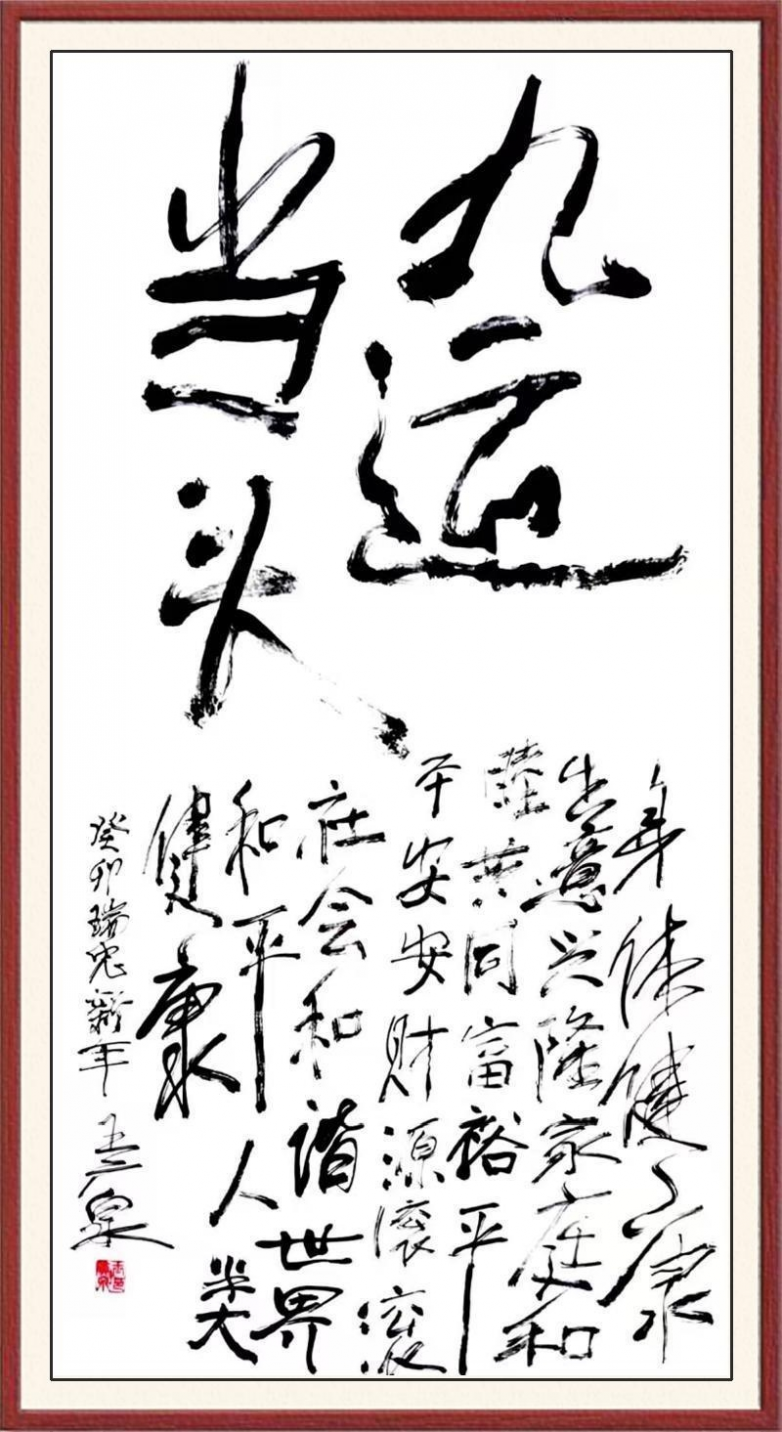 九运
当头
身体健康
生意兴隆家庭和
睦共同富裕平
平安安财源滚滚
社会和谐世界
和平人类
健康
癸卯瑞兔新年